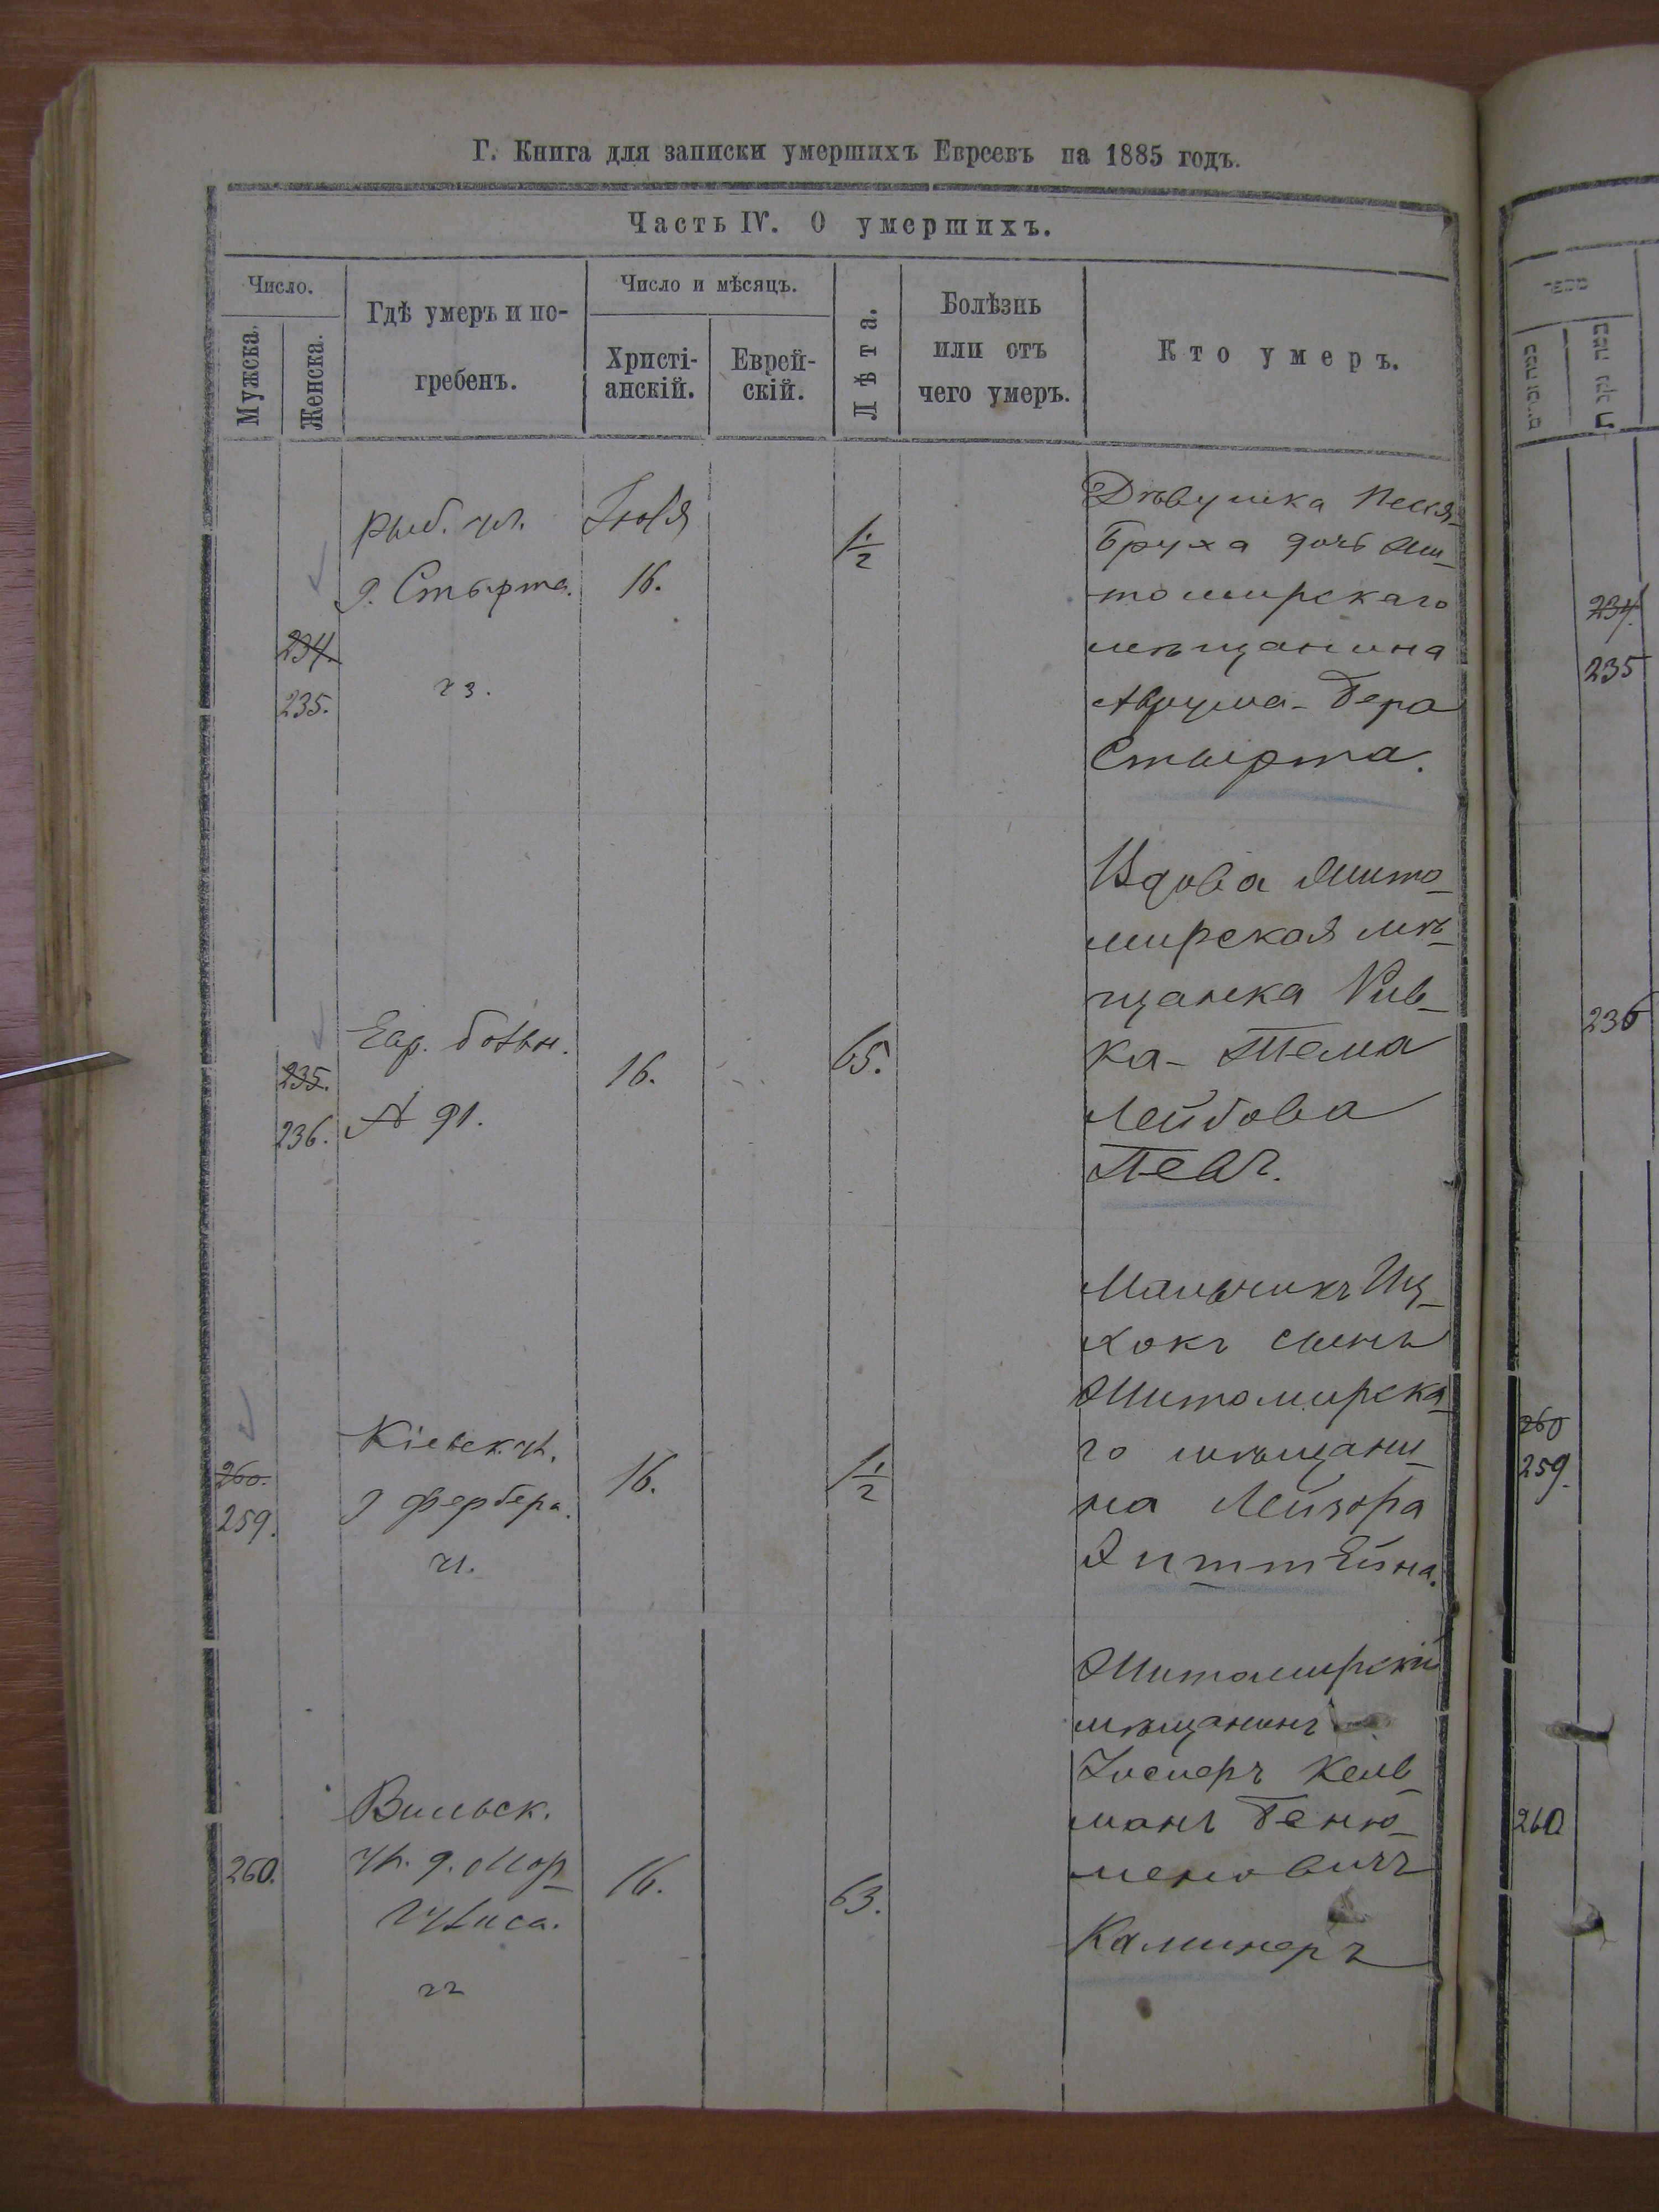 Г. Книга для записки умершихъ Евреевъ на 1885 годъ.
Часть IV. О умершихъ.
Число.
Мужска.
Женска.
Гдѣ умеръ и по-
гребенъ.
Число и мѣсяцъ.
Христі-
анскій.
Еврей-
скій.
Лѣта.
Болѣзнь
или отъ
чего умеръ.
Кто умеръ.
234.
235.
Рыб. ул.
д. Стырта.
ч 3.
Іюля
16.
1 1/2
Дѣвушка Песя-
Бруха дочь Жи-
томирскаго
мѣщанина
Аврума-Бера
Стырта.
235.
236.
Евр. больн.
16.
65.
Вдова Жито-
мирская мѣ-
щанка Рив-
ка-
Лейбова
Певч.
260.
259.
Кіевск. ул.
д Фербера.
ч1.
16.
1 1/2
Мальчикъ Иц-
хокъ сынъ
Житомирска-
го мѣщани-
на Лейзора
260.
Вильск.
ул. д. Мар-
гулиса.
ч2
16.
63.
Житомирскій
мѣщанинъ
Іосифъ Кель-
манъ Беню-
меновичъ
Каминеръ
234.
235
236
260
259.
260